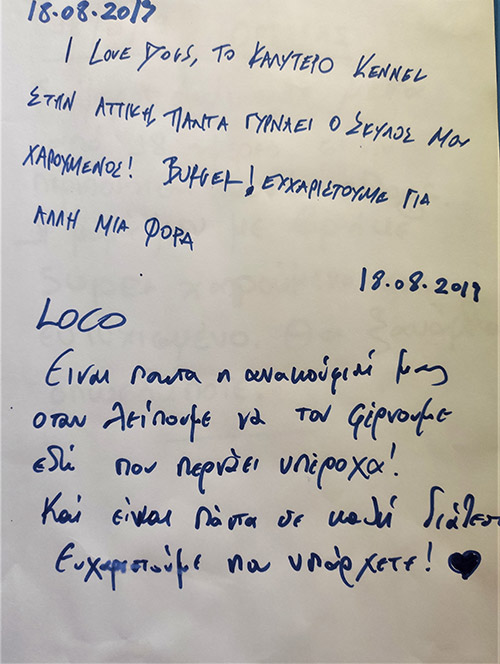 18.08.2019
I LOVE DOGS, ΤΟ ΚΑΛΥΤΕΡΟ KENNEL
ΣΤΗΝ ΑΤΤΙΚΗ, ΠΑΝΤΑ ΓΥΡΝΑΕΙ Ο ΣΚΥΛΟΣ ΜΟΥ
ΧΑΡΟΥΜΕΝΟΣ! BURGER! ΕΥΧΑΡΙΣΤΟΥΜΕ ΓΙΑ
ΑΛΛΗ ΜΙΑ ΦΟΡΑ
18.08.2019
LOCO
Ειναι παντα η ανακούφισή μας
οταν λείπουμε να τον φέρνουμε
εδώ που περνάει υπέροχα!
Και είναι πάντα σε καλή διάθεσ
Ευχαριστούμε που υπάρχετε! ♥